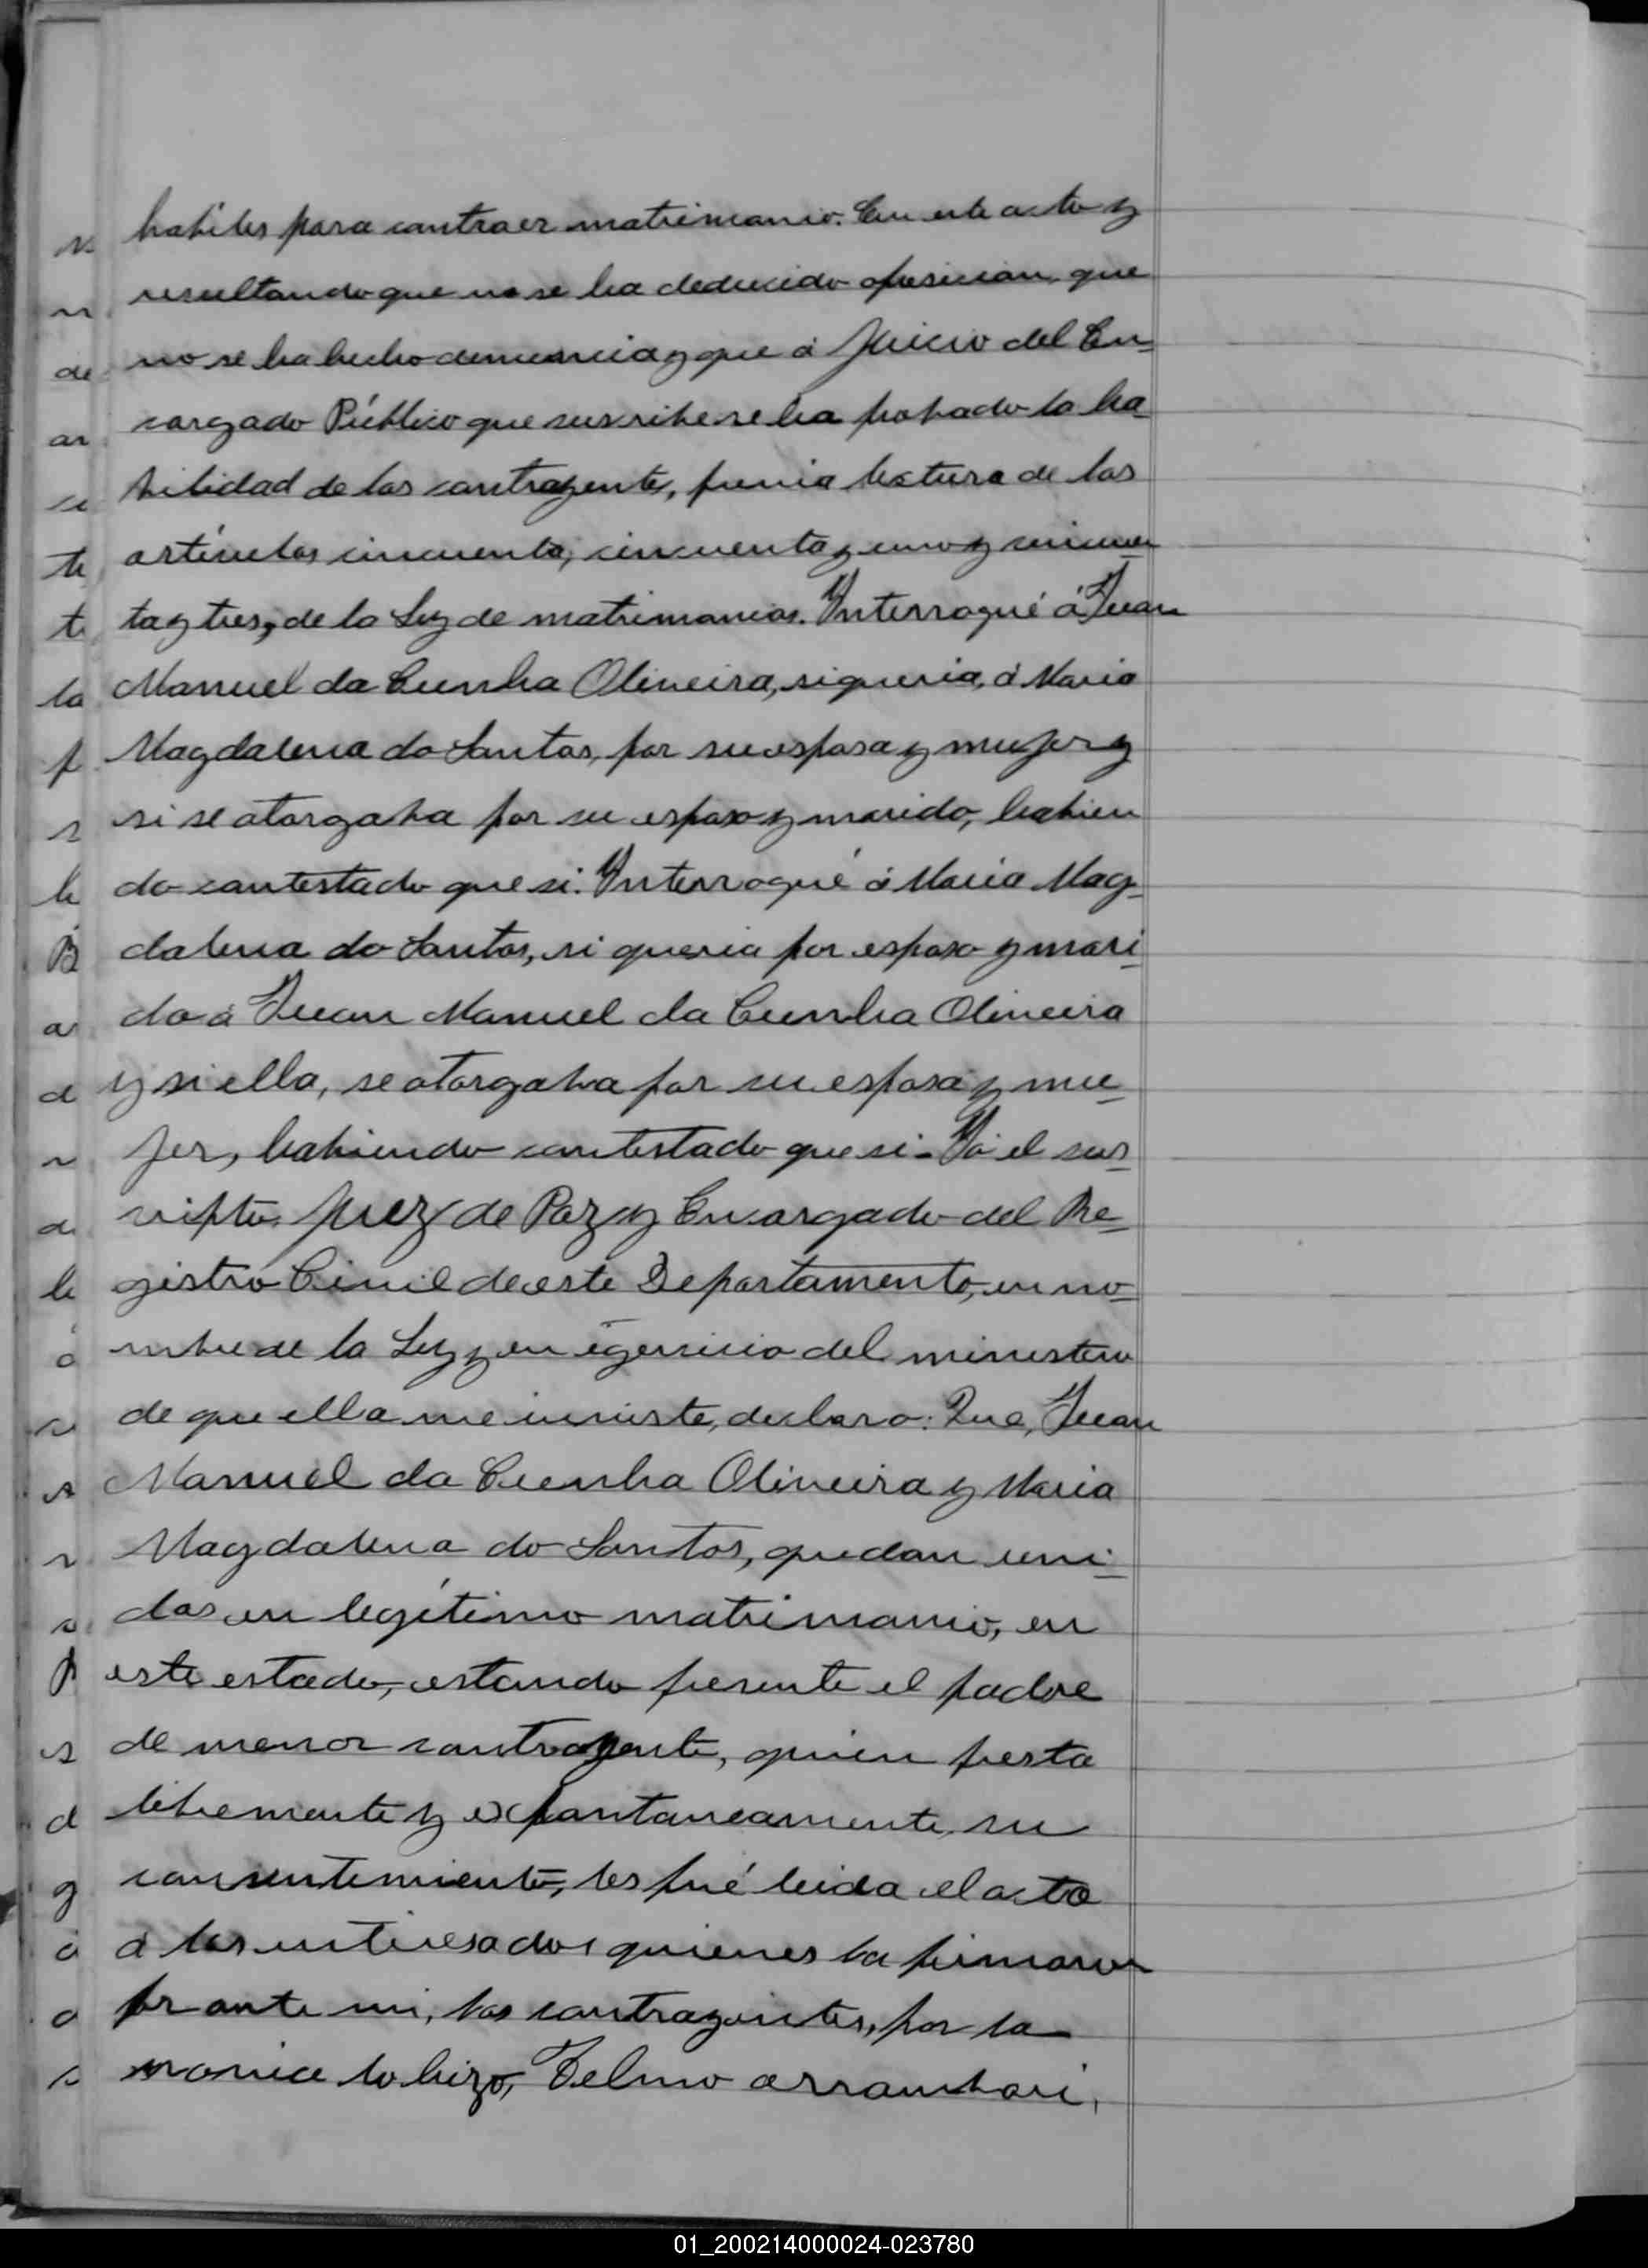 habiles para contraer matrimonio. En este acto y
resultando que no se ha deducido oposicion, que
no se ha hecho denuncia y que á Juicio del En-
cargado Público que suscribe se ha probado la ha-
bilidad de los contrayentes, previa lectura de los
artículos cincuenta, cincuenta y uno y cincuen
ta y tres, de la Ley de matrimonios. Interrogué á Juan
Manuel da Cunha Oliveira, si queria, á Maria
Magdalena do Santos, por su esposa y mujer y
si se otorgaba por su esposo y marido, habien
do contestado que si. Interrogué á Maria Mag-
dalena do Santos, si queria por esposo y mari-
do á Juan Manuel da Cunha Oliveira
y si ella, se otorgaba por su esposa y mu-
jer, habiendo contestado que si - Yó el sus-
cripto Juez de Paz y Encargado del Re-
gistro Civil de este Departamento, en no-
mbre de la Ley y en egercicio del ministerio
de que ella me inviste, declaro: Que, Juan
Manuel da Cunha Oliveira y Maria
Magdalena do Santos, quedan uni-
dos en legítimo matrimonio, en
este estado, estando presente el padre
de menor contrayente, quien presta
libremente y expontaneamente su
consentimiento, les fué leida el acta
á los interesados quienes la firmaron
por ante mi, los contrayentes, por la
novia lo hizo, Telmo arrambari,
01_200214000024-023780